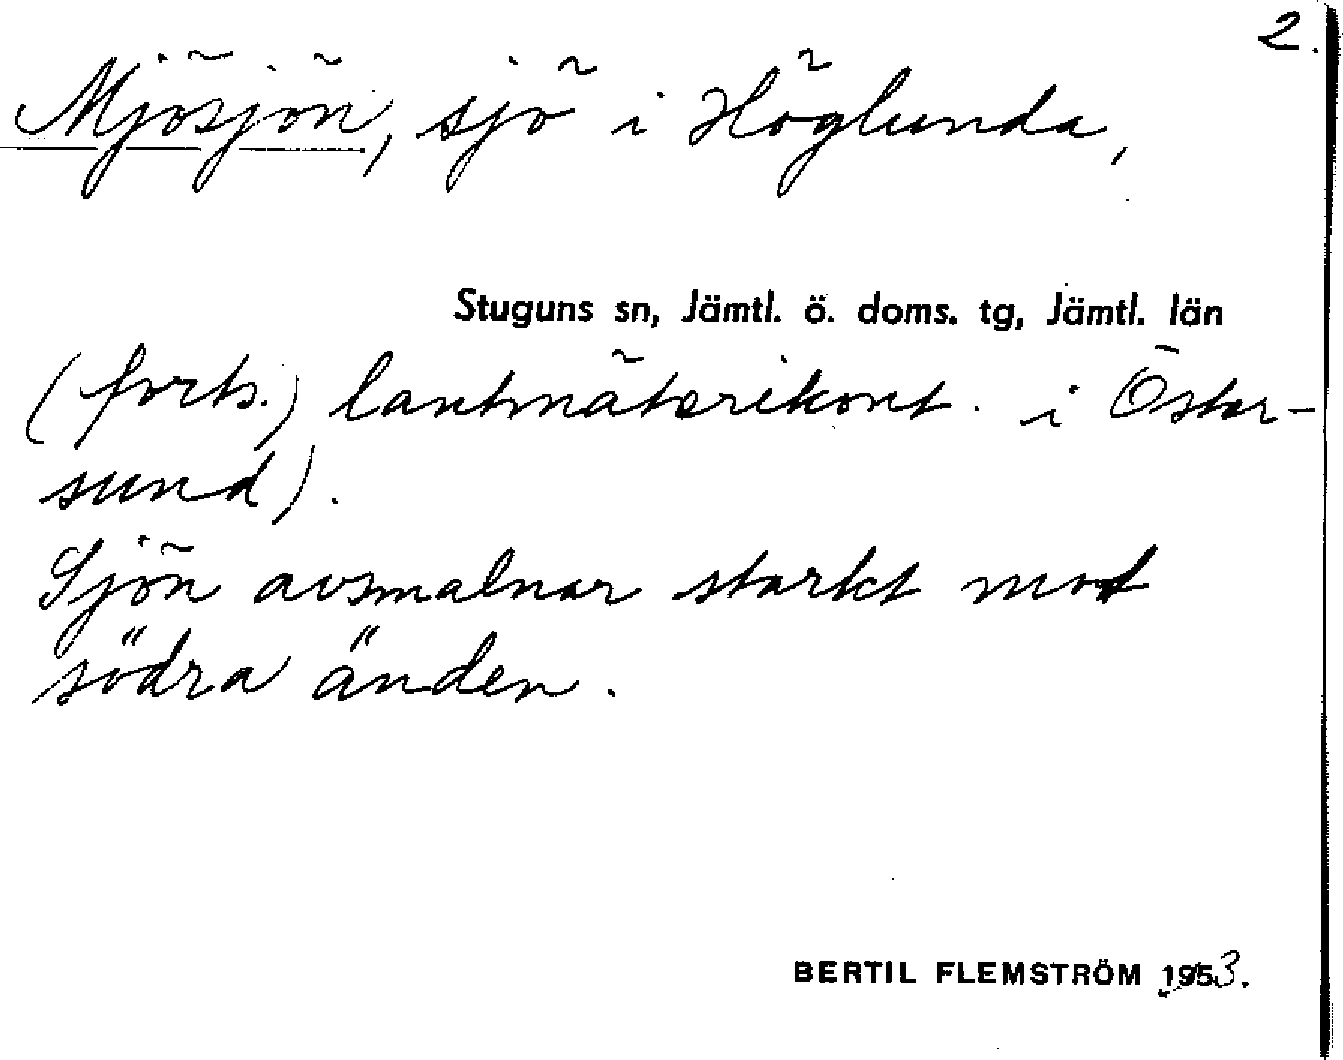 2.
Mjösjön, sjö i Höglunda,
Stuguns sn, Jämtl. ö. doms. tg, Jämtl. län
(forts.) lantmäterikont. i Öster-
sund).
Sjön avsmalnar starkt mot
södra änden.
BERTIL FLEMSTRÖM 1953.